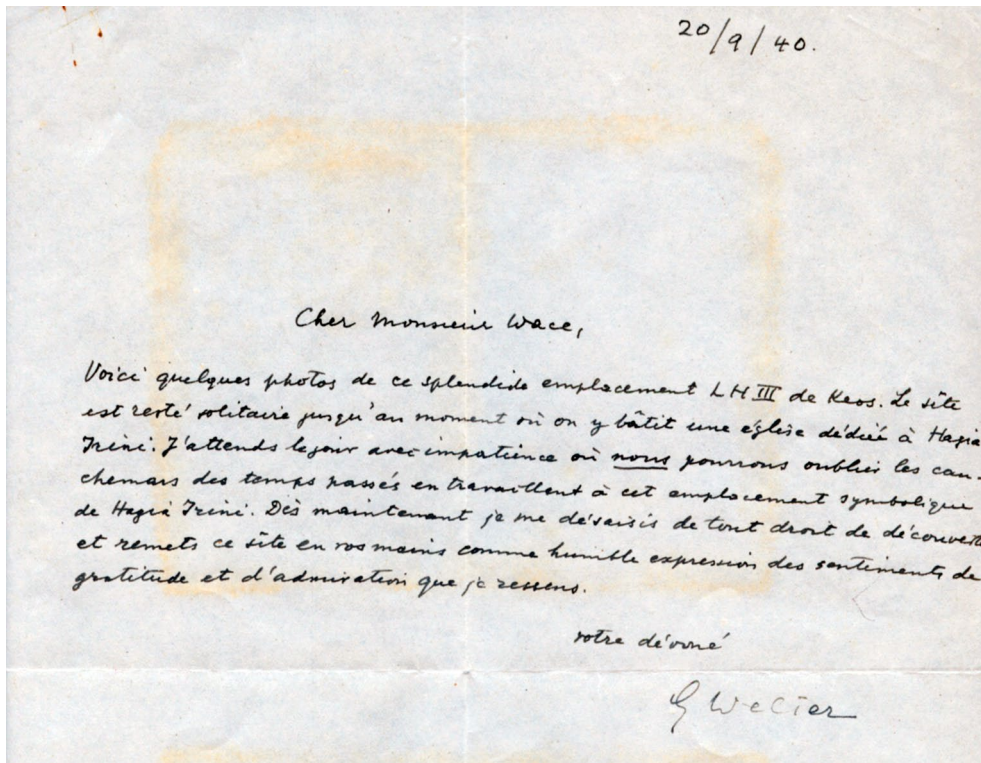 20/9/40.
Cher Monsieur Wace,
Voici quelques photos de ce splendide emplacement LH III de Keos. Le site
est resté solitaire jusqu'au moment où on y bâtit une église dédiée à Hagia
Irini. J'attends le jour avec impatience où nous pourrons oublier les cau-
chemars des temps passés en travaillent à cet emplacement symbolique
de Hagia Irini. Dès maintenant je me désaisis de tout droit de découverte
et remets ce site en vos mains comme humble expression des sentiments de
gratitude et d'admiration que je ressens.
votre dévoué
G Welter